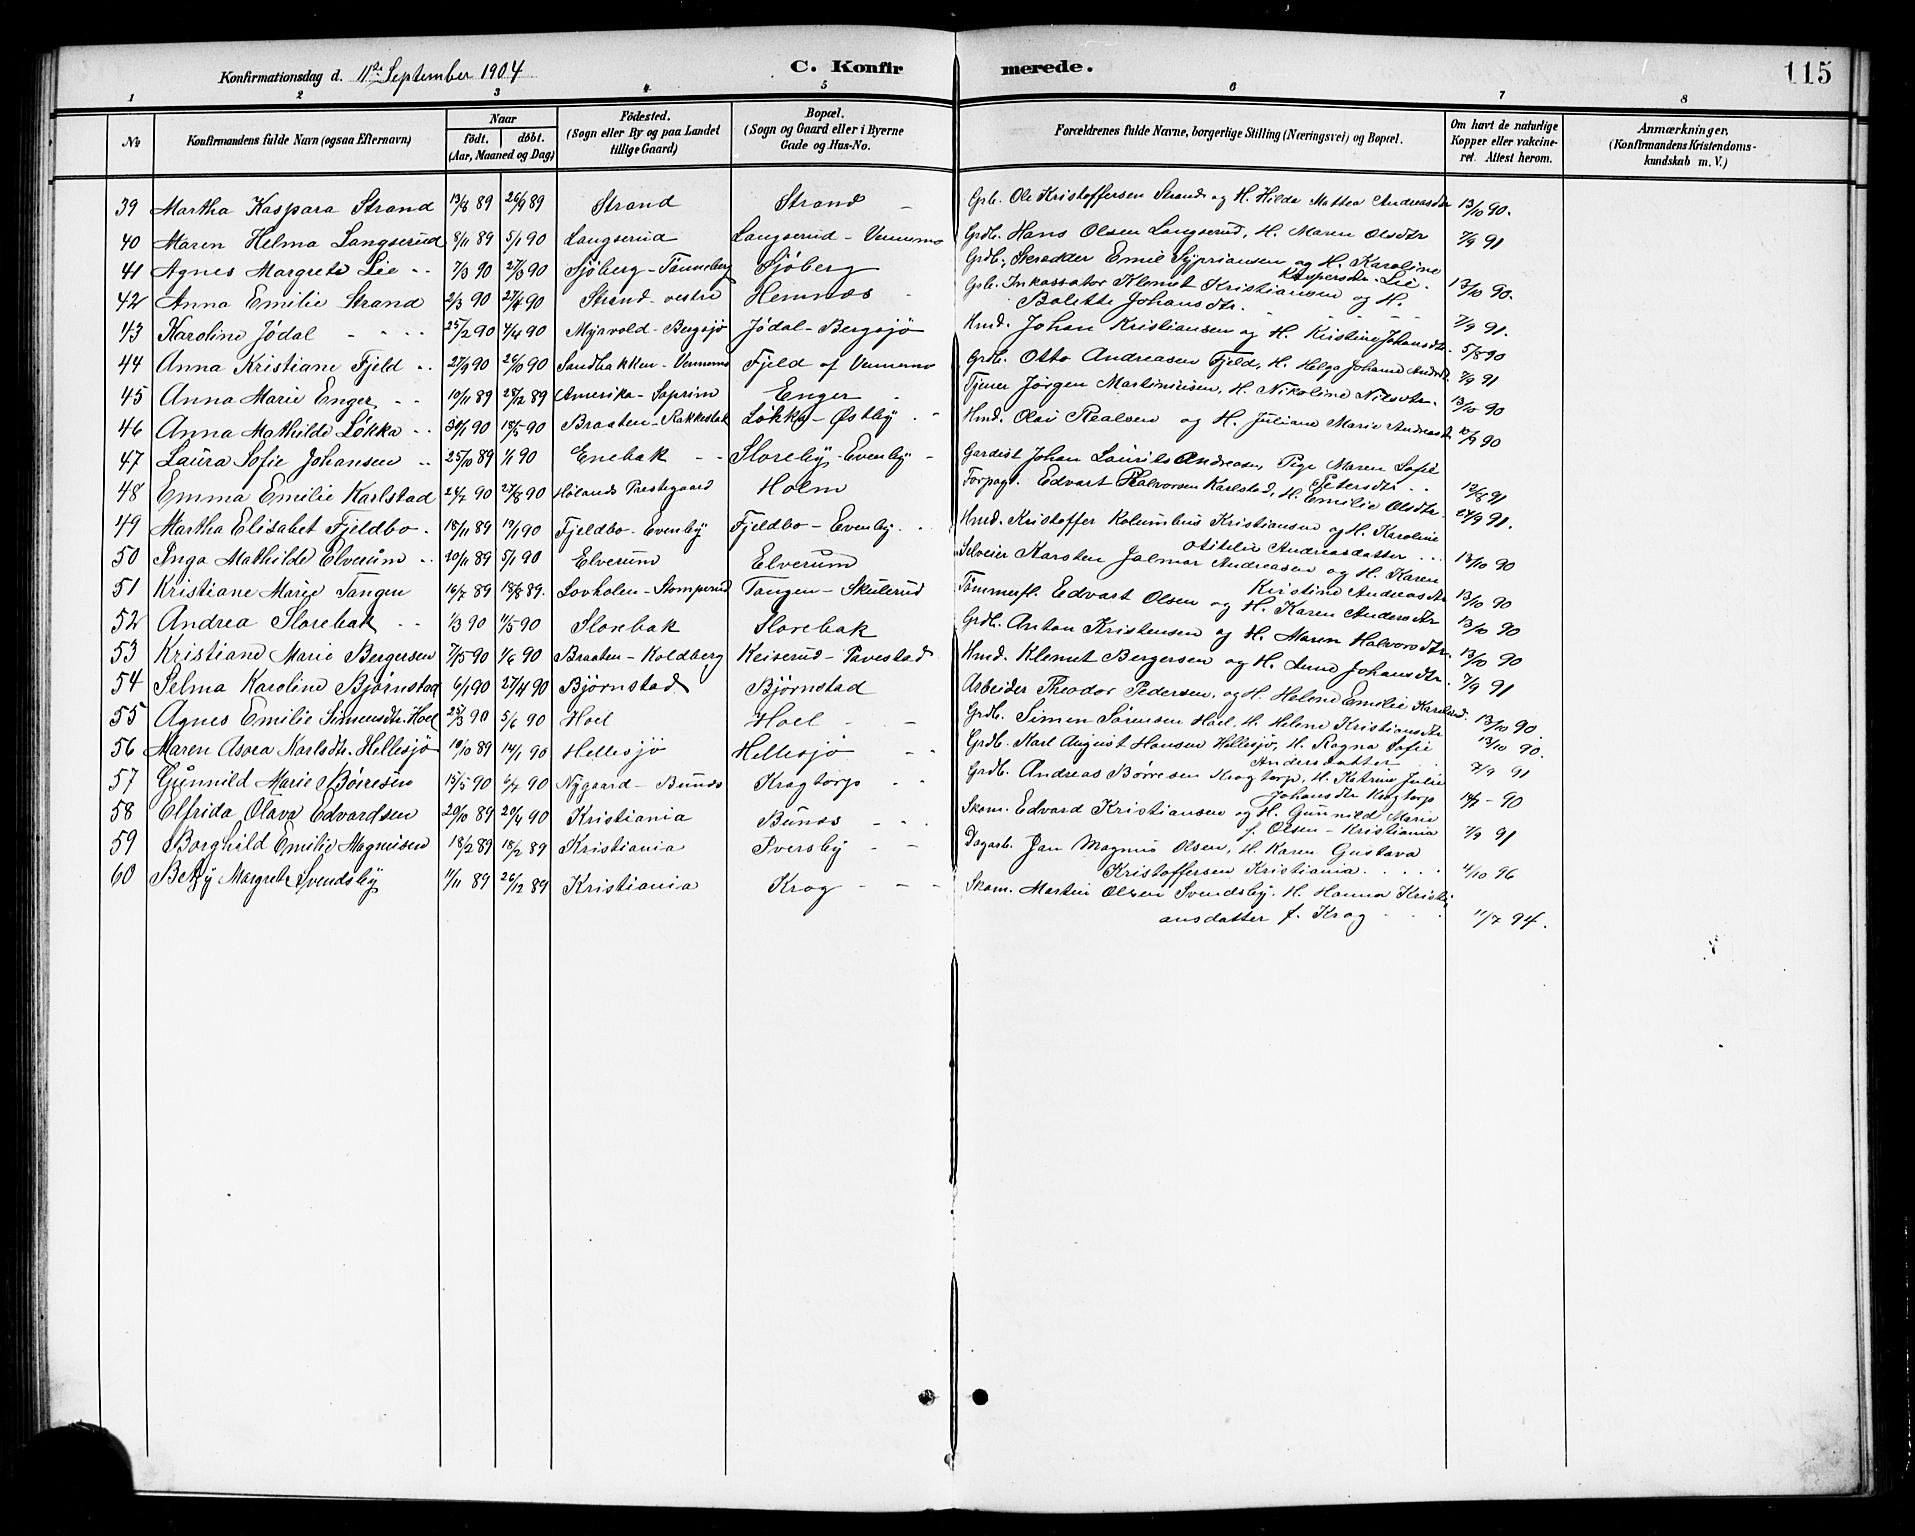 Konfirmationsdag d. 11te September 1904
C. Konfirmerede.
115
1 2 3 4 5 6 7 8
No
Konfirmandens fulde Navn (ogsaa Efternavn)
Naar
födt. döbt.
(Aar, Maaned og Dag)
Födested.
(Sogn eller By og paa Landet
tillige Gaard)
Bopæl.
(Sogn og Gaard eller i Byerne
Gade og Hus-No.
Forældrenes fulde Navne, borgerlige Stilling (Næringsvei) og Bopæl.
Om havt de naturlige
Kopper eller vakcine-
ret. Attest herom.
Anmærkninger,
(Konfirmandens Kristendoms-
kundskab m. V.)
39 Martha Kaspara Strand 13/8 89 26/9 89 Strand Strand Gpb. Ole Kristoffersen Strand og H. Hilda Mattea Andreasdtr 13/10 90.
40 Maren Helma Langserud 8/11 89 5/1 90 Langserud Langserud - Vennemo Grdb. Hans Olsen Langserud, H. Maren Olsdtr 7/9 91
41 Agnes Margrete Lie 7/3 90 27/3 90 Sjöberg - Tönneberg Sjöberg Grdb., Skrædder Emil Sypriansen og H. Karoline
Kaspersdtr. Lie. 13/10 90.
42 Anna Emilie Strand 2/3 90 27/4 90 Strand vestre Hemnæs Gpb. Inkassator Klemet Kristiansen og H.
Bolette Johansdtr. 7/9 91.
43 Karoline Jödal 25/2 90 4/4 90 Myrvold - Bergsjö Jödal - Bergsjö Hmd. Johan Kristiansen og H. Kristine Johansdtr. 5/8 90
44 Anna Kristiane Fjeld 27/9 90 26/10 90 Sandbakken - Vennemo Fjeld af Vennemo Grdb. Otto Andreasen Fjeld, H. Helga Johanne Andrdtr. 7/9 91
45 Anna Marie Enger 10/11 89 28/12 89 Amerika - Enger Tjener Jørgen Martiniusen, H. Nikoline Nilsdtr. 13/10 90
46 Anna Mathilde Løkka 30/1 90 18/5 90 Braaten - Rakkestad Løkka - Østby Hmd. Olai Realsen og H. Juliane Marie Andreasdtr 10/9 90
47 Laura Sofie Johansen 25/10 89 1/1 90 Enebak Sloreby - Evenby Gardist Johan Laurits Andreasen, Pige Maren Sofie
Petersdtr 12/8 91
48 Emma Emilie Karlstad 24/7 90 27/8 90 Hølands Prestegaard Holm Forpagt. Edvart Halvorsen Karlstad, H. Emilie Olsdtr. 24/9 91.
49 Martha Elisabet Fjeldbo 18/11 89 19/1 90 Fjeldbo - Evenby Fjeldbo - Evenby Hmd. Kristoffer Kolumbus Kristiansen og H. Karoline
Otilie Andreasdatter 13/10 90
50 Inga Mathilde Elverum 20/11 89 5/1 90 Elverum Elverum Selveier Karsten Jalmar Andreasen og H. Karen
Kristine Andreasdtr 13/10 90
51 Kristiane Marie Tangen 16/7 89 18/8 89. Lovholen - Stomperud Tangen - Skulerud Tømmerfl. Edvart Olsen og H. Karen Andersdtr 13/10 90
52 Andrea Slorebak 1/3 90 11/5 90 Slorebak Slorebak Grdb. Anton Kristensen og H. Maren Halvorsdtr. 13/10 90
53 Kristiane Marie Bergersen 7/5 90 1/6 90 Braaten - Koldberg Keiserud - Tavestad Hmd. Klemet Bergersen og H. Lene Johansdtr. 7/9 91
54 Selma Karoline Bjørnstad 6/1 90 27/4 90 Bjørnstad Bjørnstad Arbeider Theodor Pedersen, og H. Helene Emilie Karlsd. 13/10 90.
55 Agnes Emilie Simensdtr. Hoel 25/3 90 5/6 90 Hoel Hoel Grdb. Simen Sørensen Hoel, H. Helene Kristiansdtr 13/10 90.
56 Maren Asora Karlsdtr. Hellesjø 19/10 89 14/1 90 Hellesjø Hellesjø Grdb. Karl August Hansen Hellesjø, H. Ragna Sofie
Andersdatter 7/9 91
57 Gunnild Marie Børresen 15/5 90 6/7 90 Nygaard - Bunæs Kragtorp Grdb. Andreas Børresen Kragtorp, H. Katrine Julie
Johansdtr Kragtorp 14/7 - 90
58 Elfrida Olava Edvardsen 20/10 89 20/4 90 Kristiania Bunæs Skom. Edvard Kristiansen og H. Gunnild Marie
f. Olsen - Kristiania 7/9 91
59 Borghild Emilie Magnusen 18/2 89 18/2 89 Kristiania Tversby Dagarb. Jan Magnus Olsen, H. Karen Gustava
Kristoffersen Kristiania 4/10 96
60 Betzy Margrete Svendsby 11/11 89 26/12 89 Kristiania Krog Skom. Martin Olsen Svendsby. H. Hanna Kristi-
ansdatter f. Krog 11/7 94.